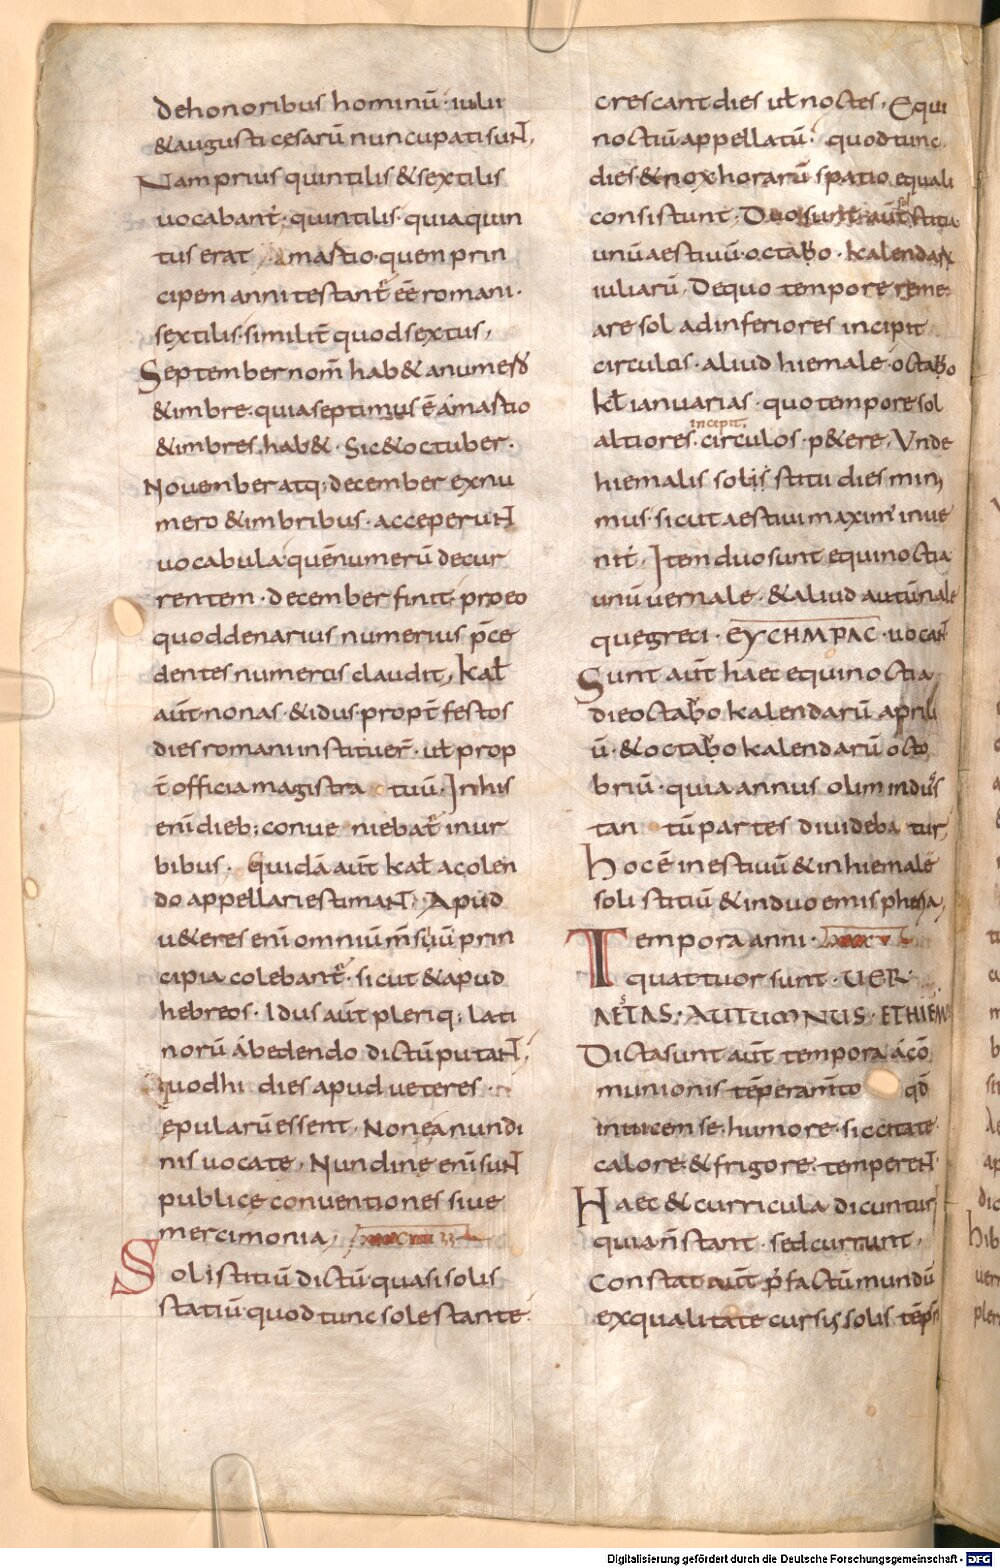 dehonoribus hominū· iulii
&augusti cesarū nuncupatisuNT,
Nam prius quintilis & sextilis
uocabant̄· quintilis· quiaquin
tus erat a mastio· quem prin
cipem anni testant̄ ēē romani·
sextilis· similit̄ quodsextus,
September nom̄ hab& anumero
& imbre· quiaseptimus ē ámastio
& imbres· hab&· Sic&octuber·
Nouember atq; december exnu
mero & imbribus· acceperuNT
uocabula· quēnumerū decur
rentem· december finit· proeo
quoddenarius numerus p̄ce
dentes numeros claudit, kał
aūt nonas· & idus· propt̄ festos
dies romani instituer̄· uł prop
t̄ officia magistra tuū· Inhis
enī dieb; conue niebat̄ inur
bibus· Quidā aūt kał acolen
do appellari estimaNT· Apud
u&eres enī omniū m̄siū prin
cipia colebant̄· sicut &apud
hebreos· Idus aūt pleriq; lati
norū ábedendo dictū putaNT,
quodhi dies apud ueteres
ępularū essent, Nonęanundi
nis uocate, Nundine enī suNT
publicę conuentiones siue
mercimonia,
Solistitiū dictū quasisolis
statiū· quod tunc solestante
crescant dies uł noctes, Equi
noctiū appellatū· quod tunc
dies & nox horarū spatio equali
consistunt· Duo sunt aūt sol stitia
unū aestiuū· octabo· kalendas
iuliarū, Dequo tempore reme
are sol adinferiores incipit
circulos· aliud hiemale· octabo
kł ianuarias· quo tempore sol
altiores· incipit, circulos· p&ere, Vnde
hiemalis solis stitii dies mini
mus· sicut aestiui maxim' inue
nit̄· Item duo sunt equinoctia
unū uernale· & aliud autūnale
quęgreci· EYCHMPAC· uocaNT
Sunt aūt haec equinoctia
die octabo kalendarū aprili
ū· & octabo kalendarū octo
briū· quia annus olim indu'as
tan tū partes diuideba tur,
hoc ē inestiuū & inhiemale
soli stitiū & induo emispheria,
Tempora anni·
quattuor sunt· UER·
AESTAS· AUTUMNUS· ETHIEMS
Dicta sunt aūt tempora ácō
munionis tēperam̄to qd̄
inuicem se· humore· siccitate·
calore· & frigore· tempereNT·
Haec & curricula dicuntur
quia n̄ stant· sed currunt,
Constat aūt p̄ factū mundū
exqualitate cursus solis